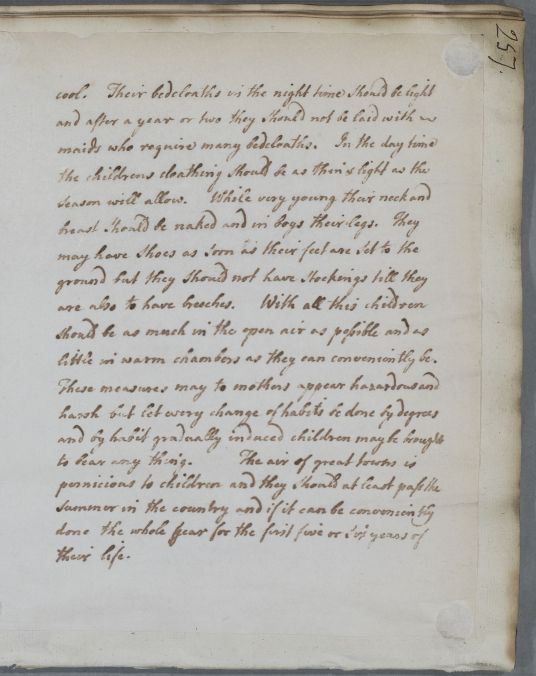 257.
cool. Their bedcloaths in the night time should be light
and after a year or two they should not be laid with
maids who require many bedcloaths. In the day time
the childrens cloathing should be as thin & light as the
season will allow. While very young their neck and
breast should be naked and in boys their legs. They
may have shoes as soon as their feet are set to the
ground but they should not have stockings till they
are also to have breeches. With all this children
should be as much in the open air as possible and as
little in warm chambers as they can conveniently be.
These measures may to mothers appear hazardous and
harsh but let every change of habits be done by degrees
and by habit gradually induced children may be brought
to bear any thing. The air of great towns is
pernicious to children and they should at least pass the
summer in the country and if it can be conveniently
done the whole year for the first five or six years of
their life.